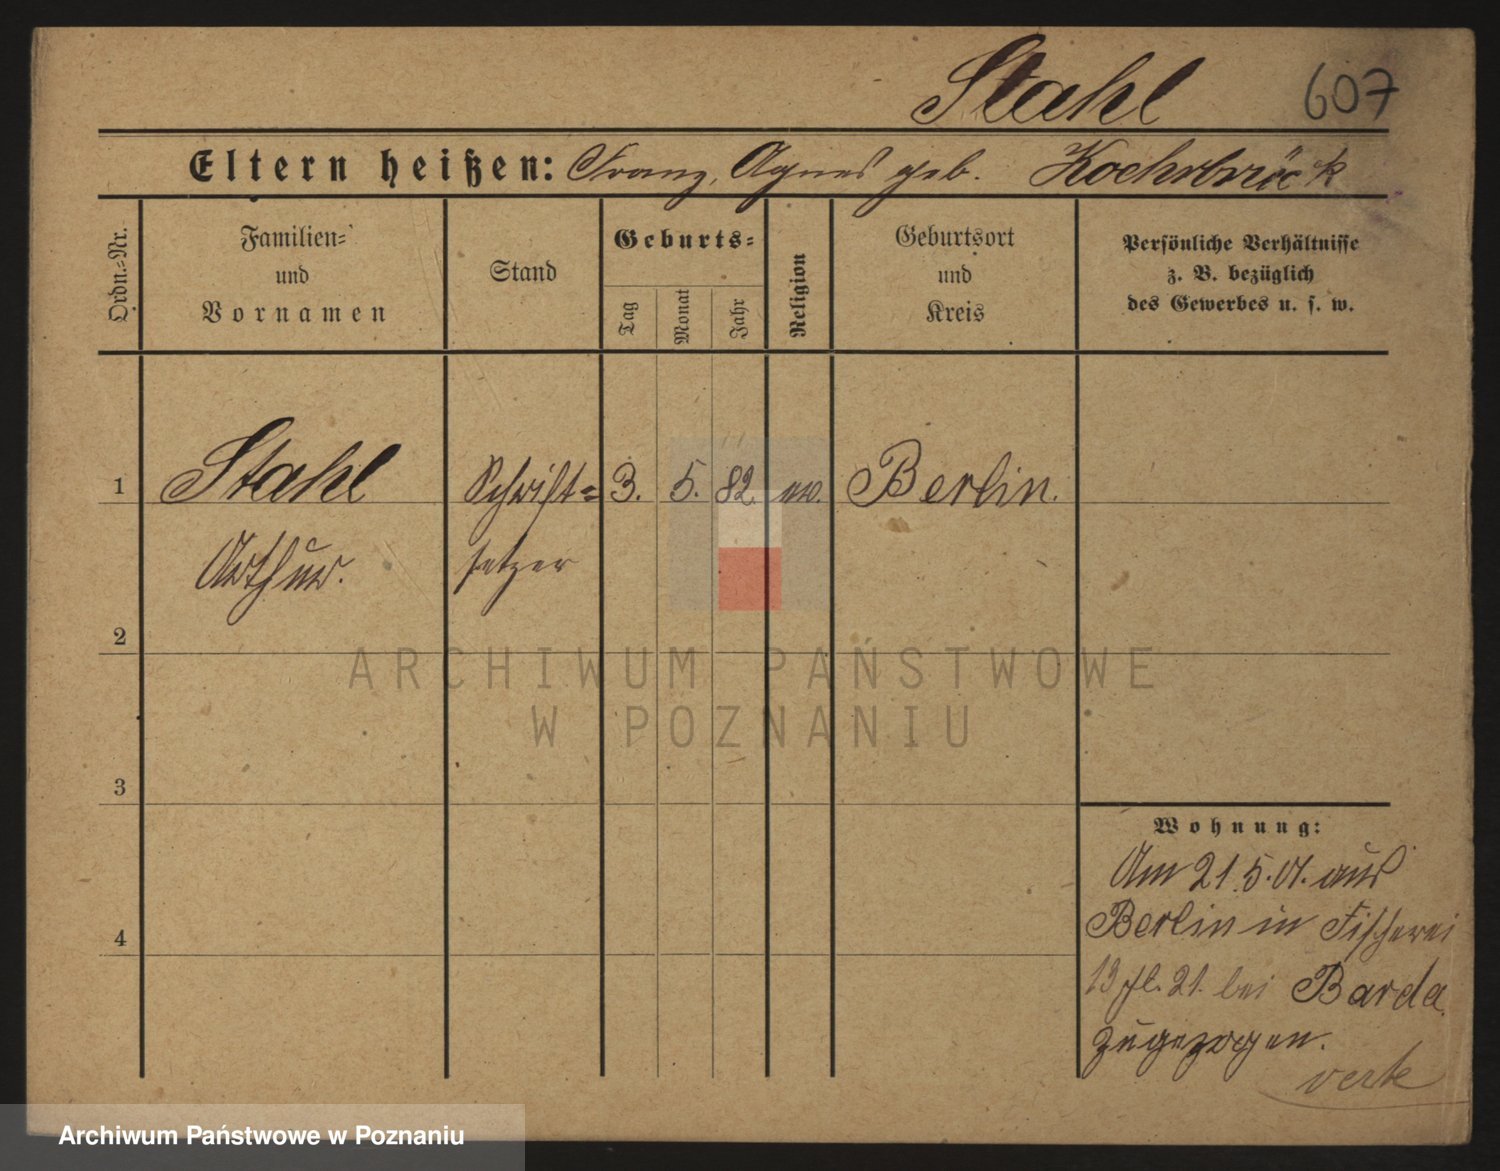 Stahl 607
Eltern heißen: Franz, Agnes geb. Kochsbröck
Ordn.-Nr.
Familien-
und
Vornamen
Stand
Geburts-
Tag
Monat
Jahr
Religion
Geburtsort
und
Kreis
Persönliche Verhältnisse
z. B. bezüglich
des Gewerbes u. s. w.
1 Stahl Schrift= 3. 5. 82. ev. Berlin.
Arthur. setzer
2
ARCHIWUM PAŃSTWOWE
W POZNANIU
3
Wohnung:
Am 21.5.01. aus
Berlin in Fischerei
4
13 21. bei Barda
zugezogen.
Archiwum Państwowe w Poznaniu